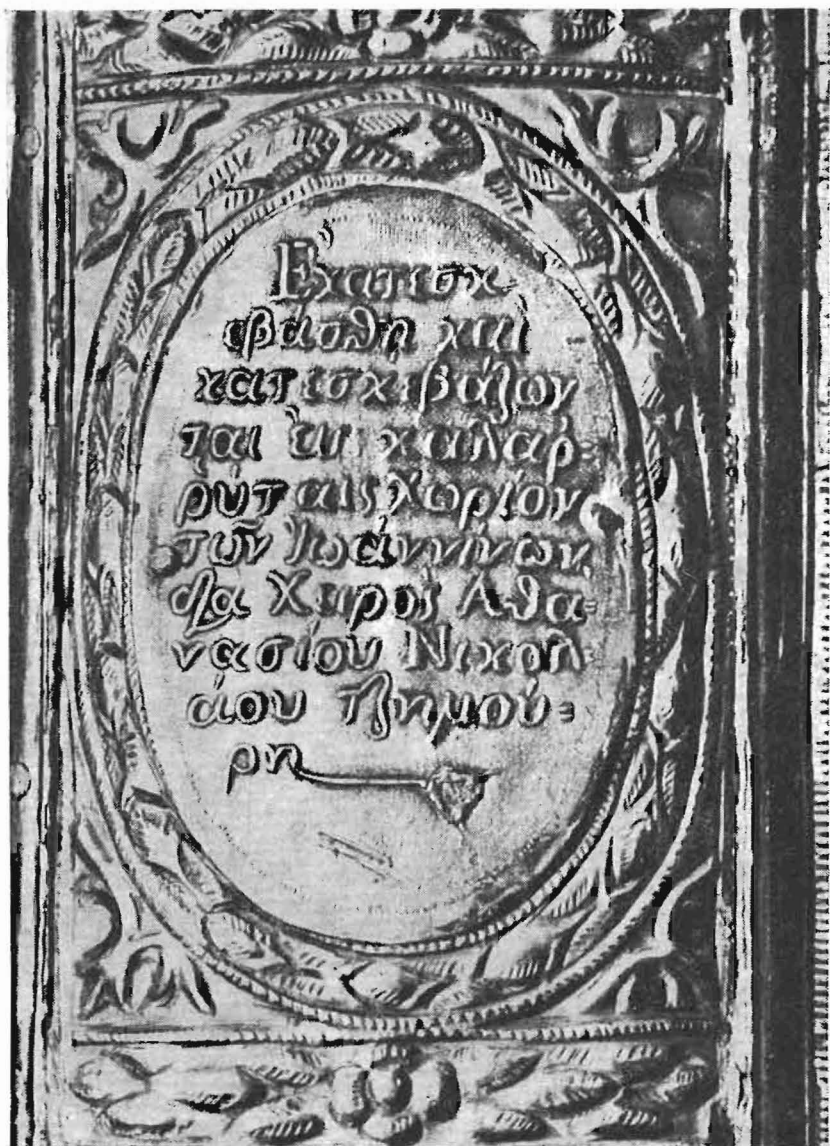 Ἐκατεσκ
εβάσθη καὶ
κατεσκεβάζων
ται εἰς καλαρ-
ρύταις χωρίον
τῶν Ἰωάννίνων
δϊα Χειρὸς Ἀθα-
νασίου Νικολ
άου τζημού-
ρη